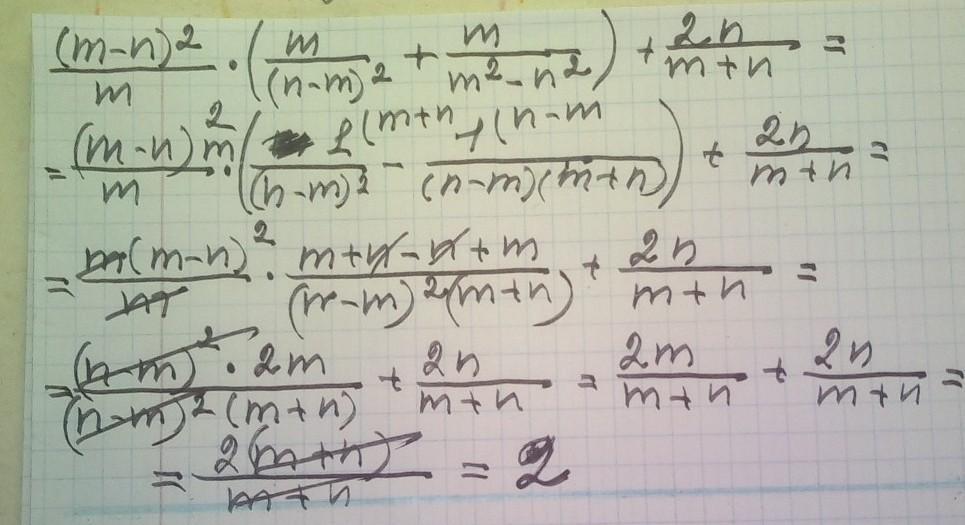 (m-n)²/m · (m/(n-m)² + m/(m²-n²)) + 2n/(m+n) =
= (m-n)²m/m · (1(m+n/(n-m)² - 1(n-m/((n-m)(m+n))) + 2n/(m+n) =
= m(m-n)²/m · (m+n-n+m)/((n-m)²(m+n)) + 2n/(m+n) =
= (n-m)²·2m/((n-m)²(m+n)) + 2n/(m+n) = 2m/(m+n) + 2n/(m+n) =
= 2(m+n)/(m+n) = 2